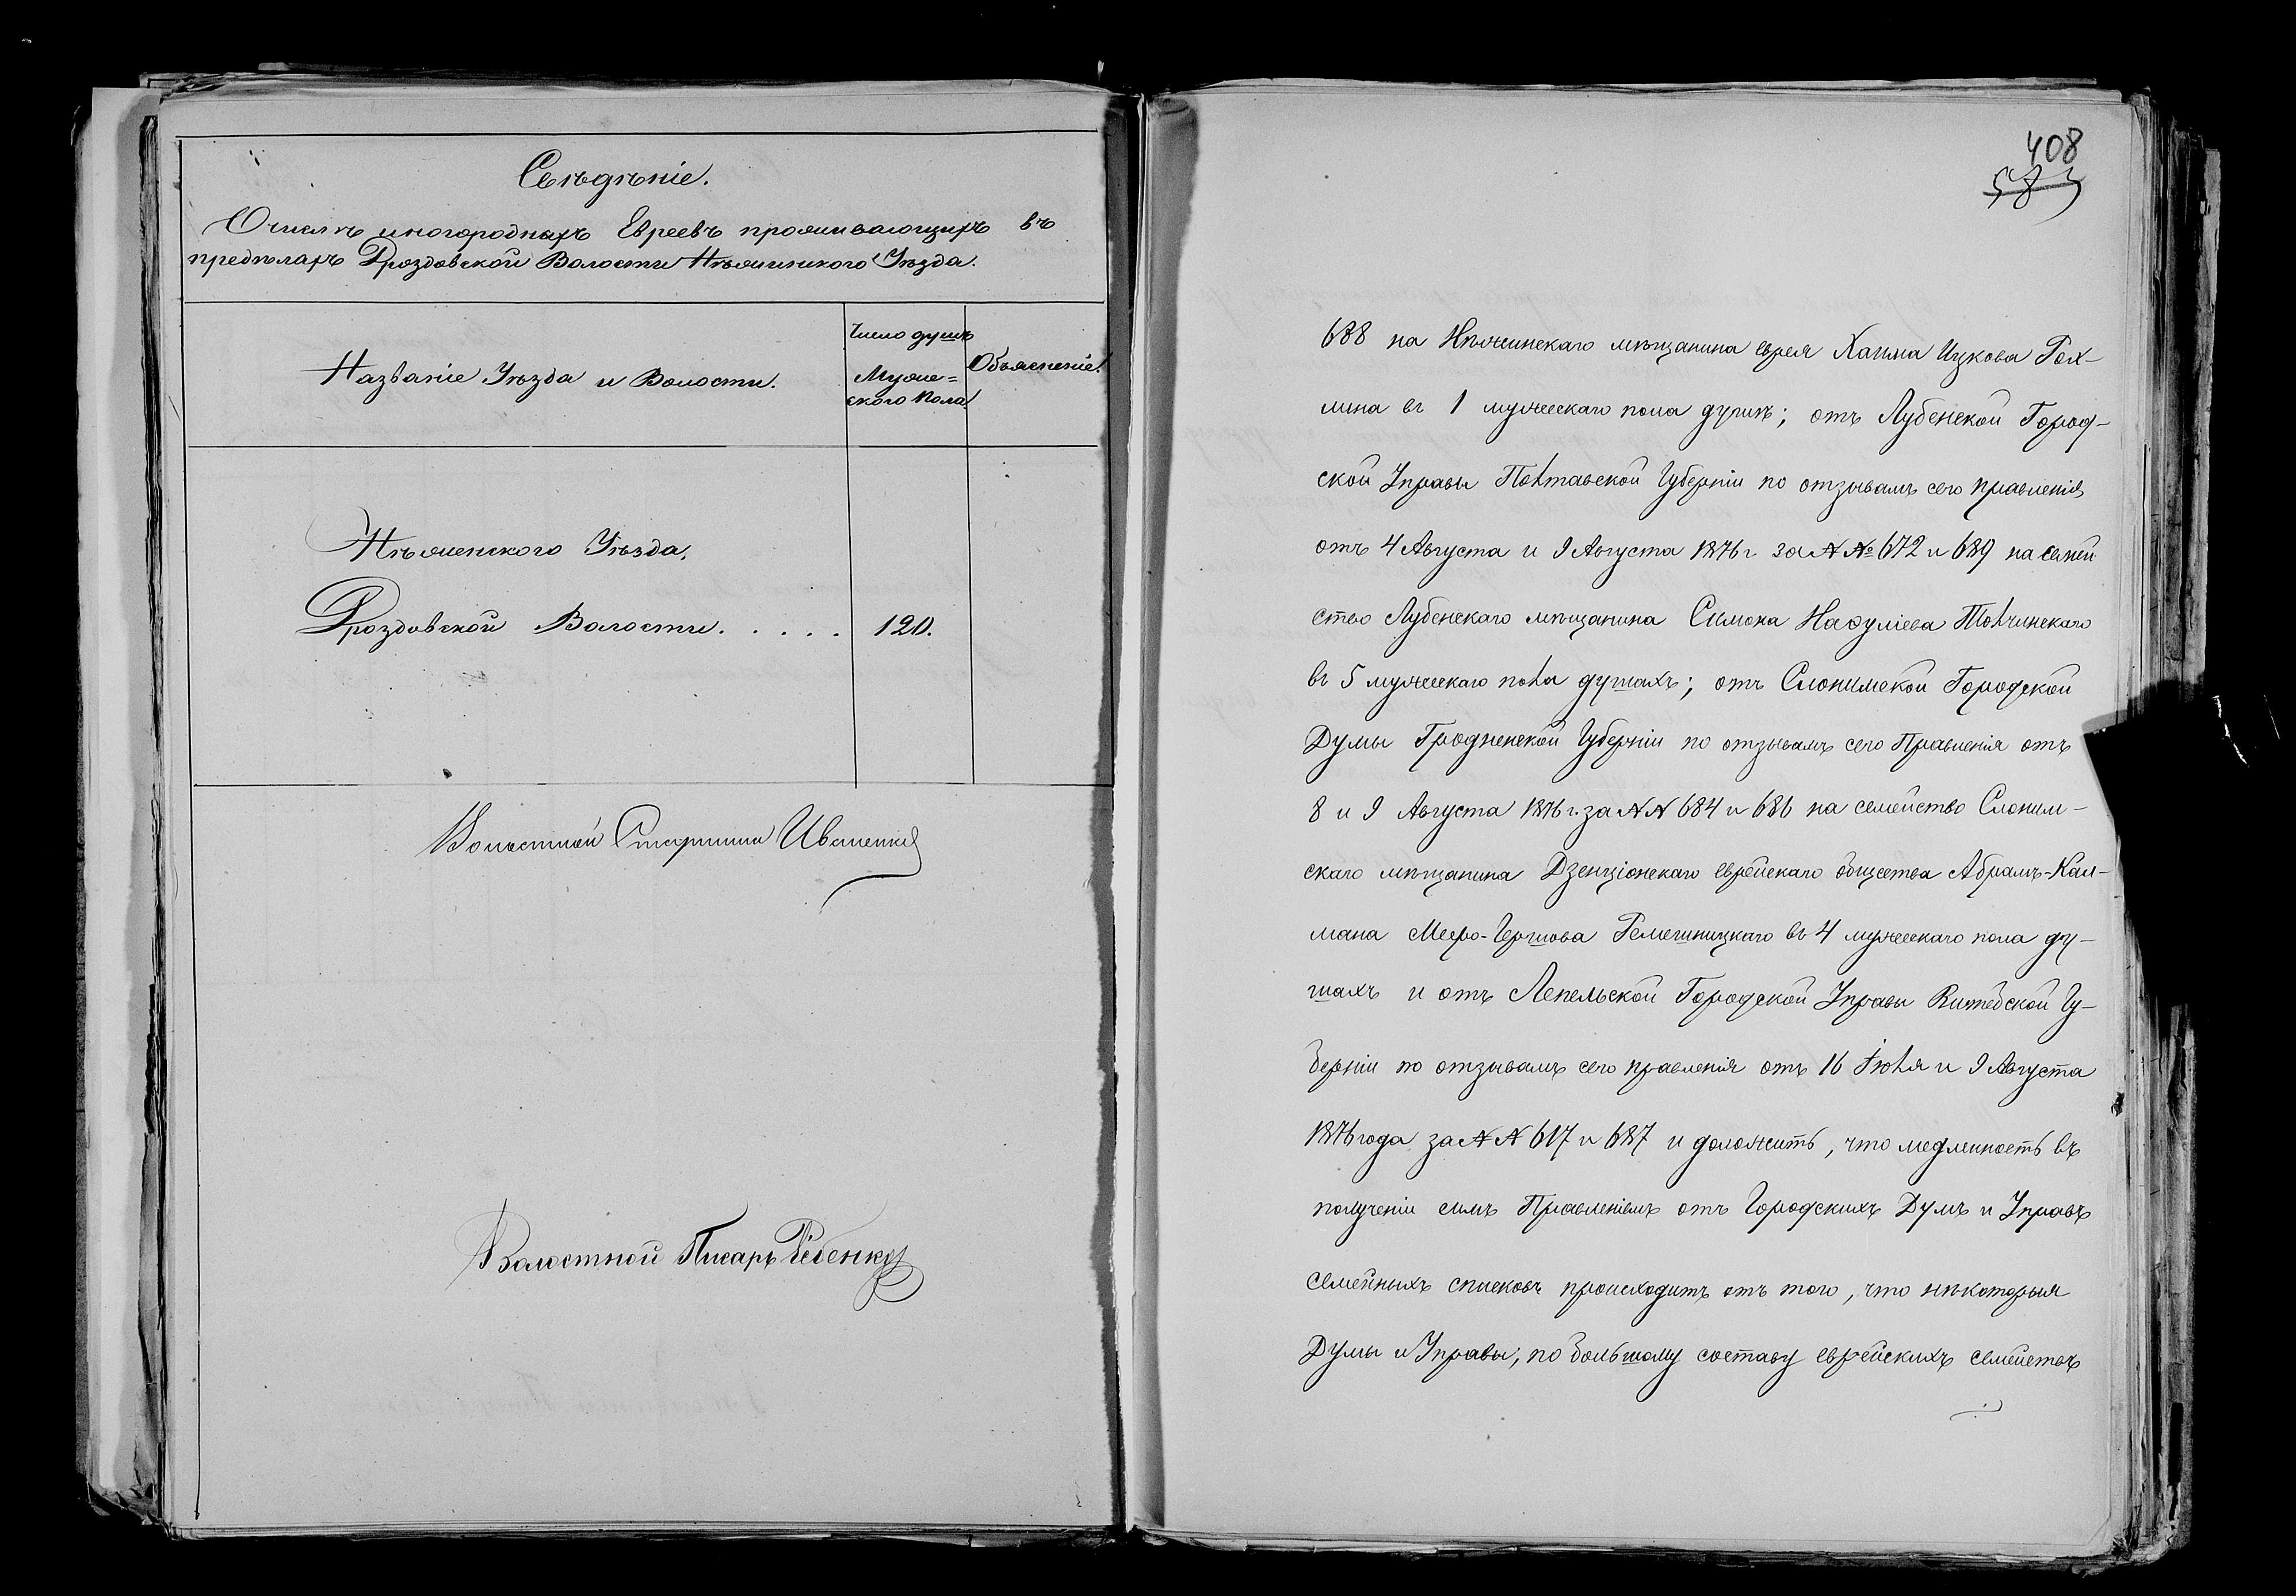 Свѣдѣніе.
О числѣ иногороднихъ Евреевъ проживающихъ въ
предѣлахъ Дроздовской Волости Нѣжинского Уѣзда.
Названіе Уѣзда и Волости.
Число душъ
Муже=
ского пола
Объясненіе.
Нѣженского Уѣзда.
Дроздовской Волости. . . . . 120.
Волостной Старшина Иваненко
Волостной Писарь
408
583
688 на Нѣжинскаго мѣщанина еврея Хаима Ицкова Рох-
лина въ 1 мужескаго пола душѣ; отъ Лубенской Город-
ской Управы Полтавской Губерніи по отзывамъ сего правленія
отъ 4 Августа и 9 Августа 1876 г. за №№ 672 и 689 на семей
ство Лубенскаго мѣщанина Симона Толчинскаго
въ 5 мужескаго пола душахъ; отъ Слонимской Городской
Думы Гродненской Губерніи по отзывамъ сего Правленія отъ
8 и 9 Августа 1876 г. за №№ 684 и 686 на семейство Слоним-
скаго мѣщанина еврейскаго общества Абрамъ-Кал-
мана Мееро-Гершова въ 4 мужескаго пола ду-
шахъ и отъ Лепельской Городской Управы Витебской Гу-
берніи по отзывамъ сего правленія отъ 16 Іюля и 9 Августа
1876 года за №№ 617 и 687 и доложить, что медленность въ
полученіи симъ Правленіемъ отъ Городскихъ Думъ и Управъ
семейныхъ списковъ происходитъ отъ того, что нѣкоторыя
Думы и Управы, по большому составу еврейскихъ семействъ